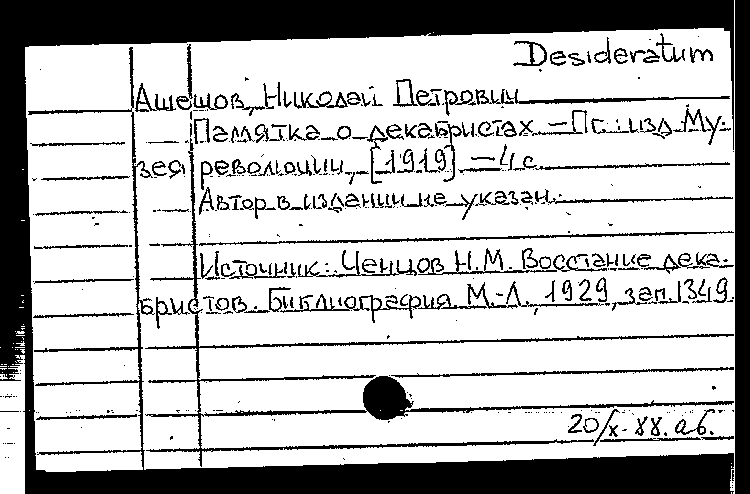 Desideratum
Ашешов, Николай Петрович
Памятка о декабристах. — Пг.: изд. Му-
зея революции, [1919]. — 4 с.
Автор в издании не указан.
Источник: Ченцов Н.М. Восстание дека-
бристов. Библиография. М.-Л., 1929, зап. 1349.
20/X-88. аб.